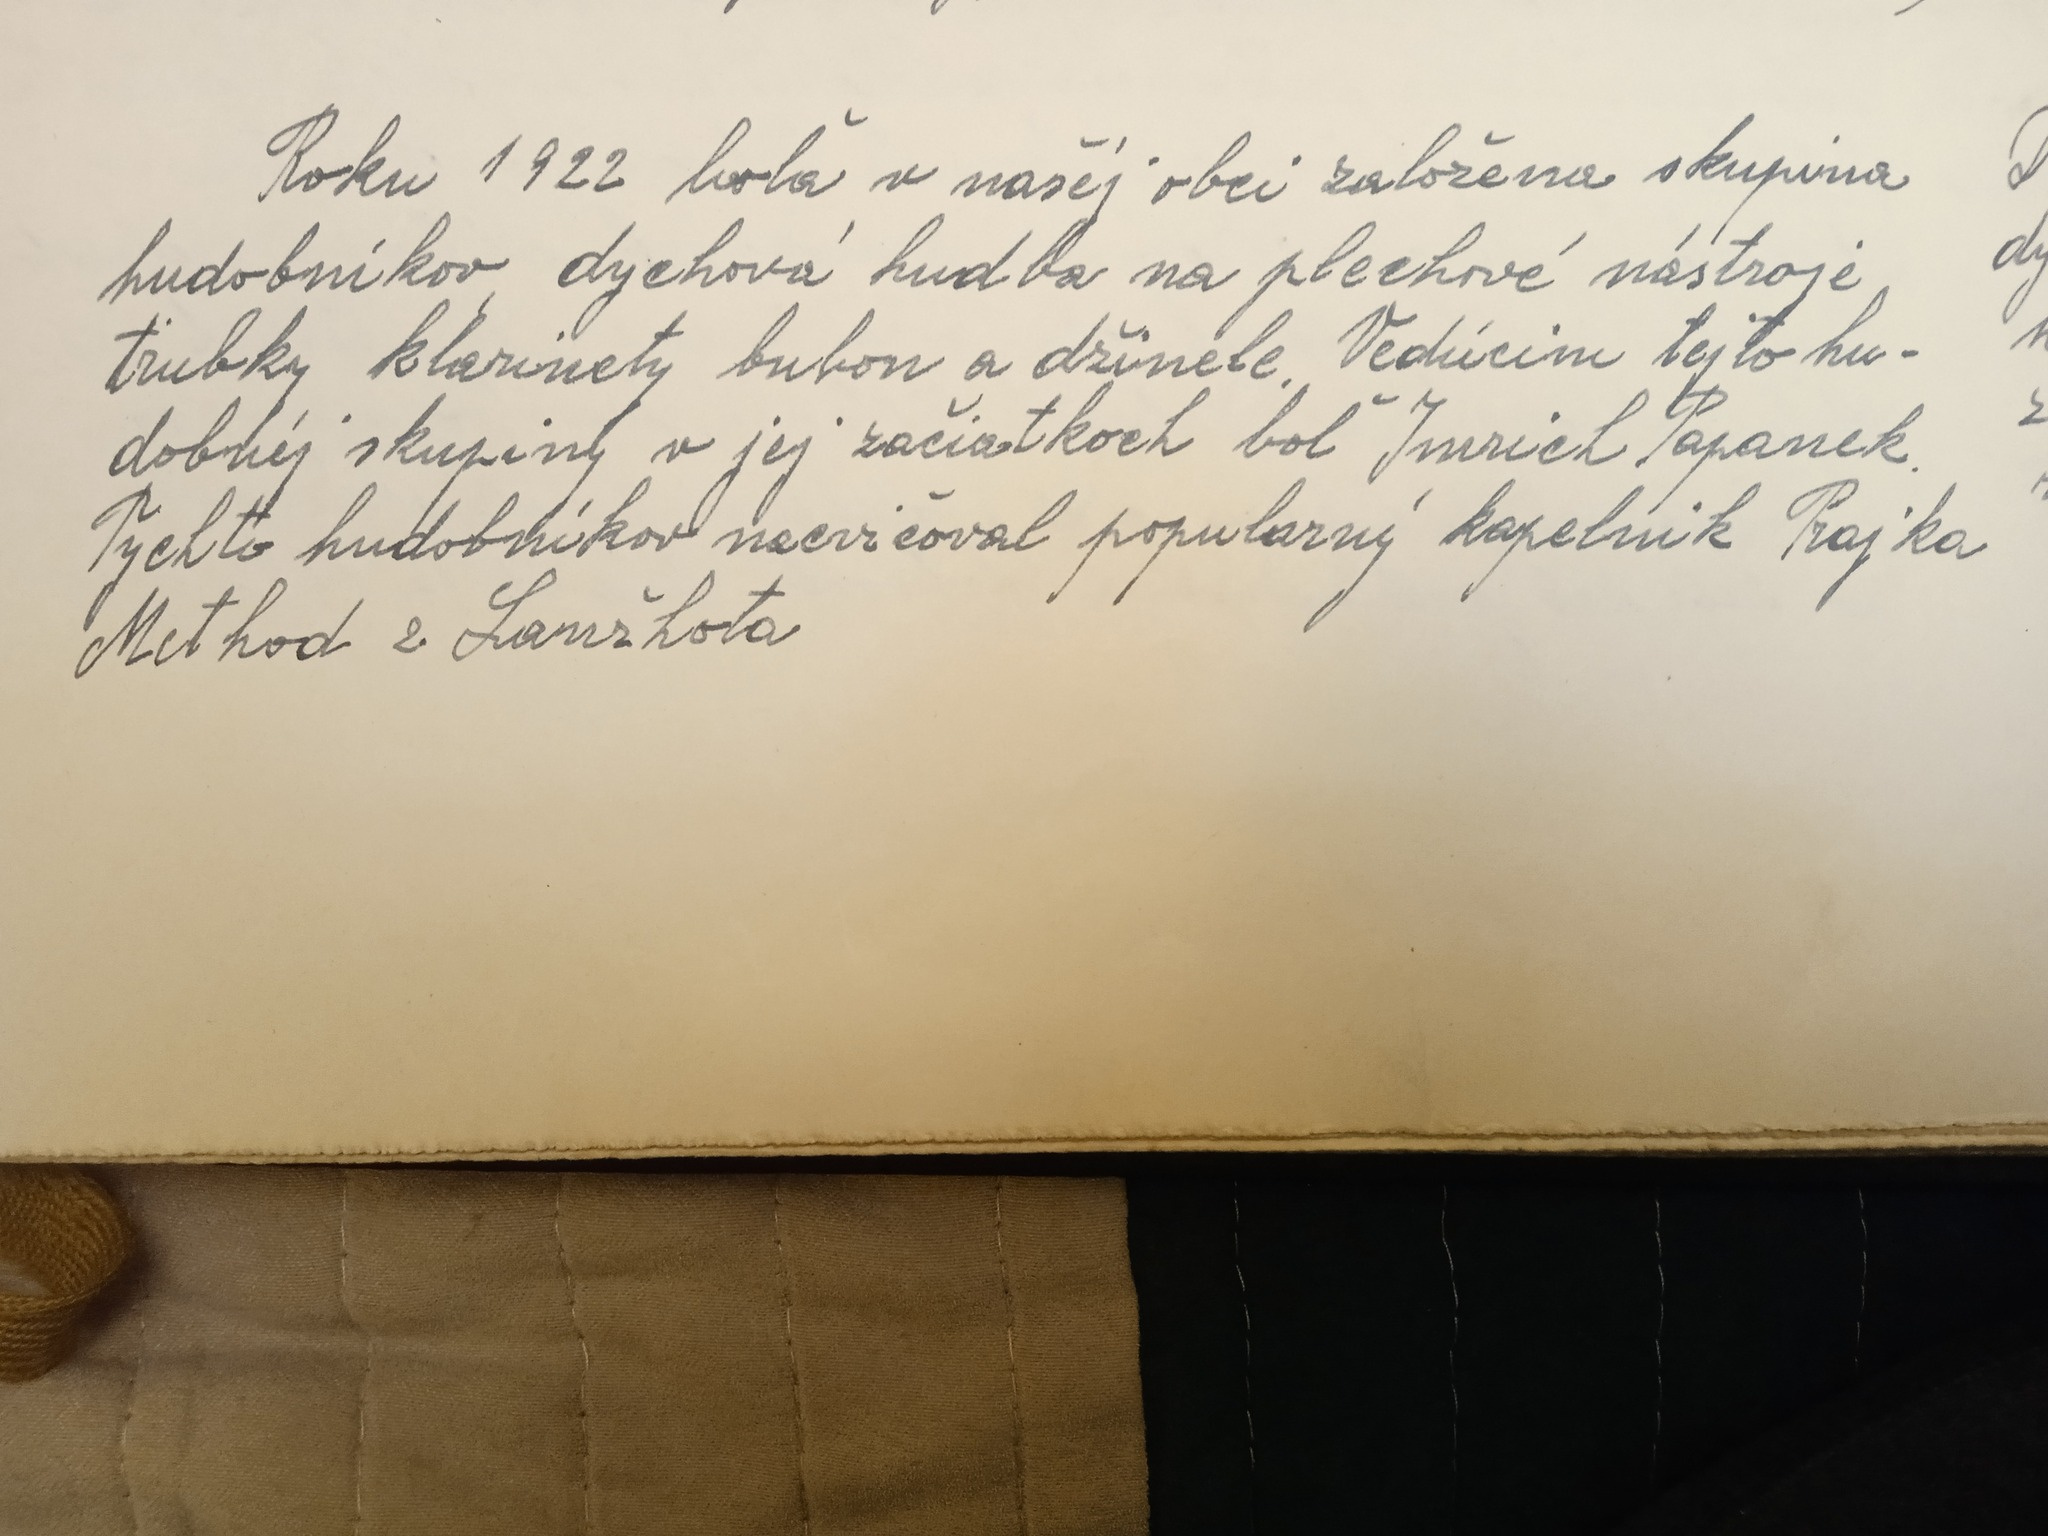 Roku 1922 bola v našej obci založena skupina
hudobníkov, dychová hudba na plechové nástroje
trubky klarinety bubon a džinele. Vedúcim tejto hu-
dobnej skupiny v jej začiatkoch bol Imrich Papanek.
Tychto hudobníkov nacvičoval popularný kapelnik Prajka
Method z Lanžhota